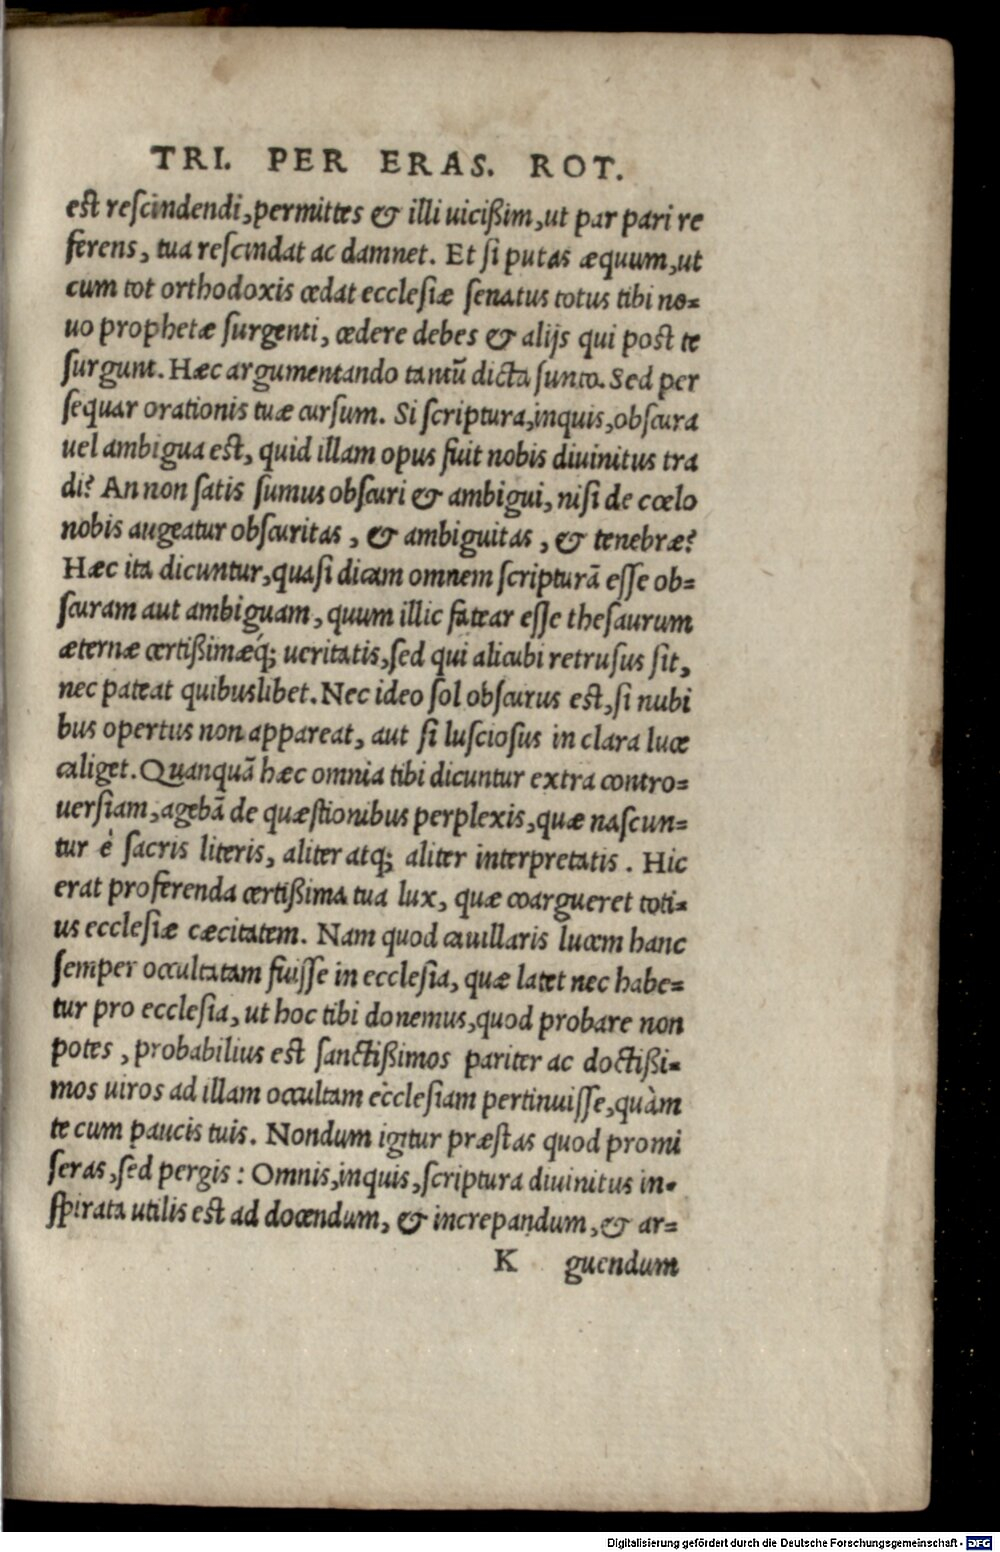 TRI. PER ERAS. ROT.
est rescindendi, permittes & illi uicißim, ut par pari re
ferens, tua rescindat ac damnet. Et si putas æquum, ut
cum tot orthodoxis cedat ecclesiæ senatus totus tibi no=
uo prophetæ surgenti, cedere debes & alijs qui post te
surgunt. Hæc argumentando tantũ dicta sunto. Sed per
sequar orationis tuæ cursum. Si scriptura, inquis, obscura
uel ambigua est, quid illam opus fuit nobis diuinitus tra
di? An non satis sumus obscuri & ambigui, nisi de cœlo
nobis augeatur obscuritas, & ambiguitas, & tenebræ?
Hæc ita dicuntur, quasi dicam omnem scripturã esse ob=
scuram aut ambiguam, quum illic fatear esse thesaurum
æternæ certißimæq́; ueritatis, sed qui alicubi retrusus sit,
nec pateat quibuslibet. Nec ideo sol obscurus est, si nubi
bus opertus non appareat, aut si lusciosus in clara luce
caliget. Quanquã hæc omnia tibi dicuntur extra contro=
uersiam, agebã de quæstionibus perplexis, quæ nascun=
tur è sacris literis, aliter atq; aliter interpretatis. Hic
erat proferenda certißima tua lux, quæ coargueret toti=
us ecclesiæ cæcitatem. Nam quod cauillaris lucem hanc
semper occultatam fuisse in ecclesia, quæ latet nec habe=
tur pro ecclesia, ut hoc tibi donemus, quod probare non
potes, probabilius est sanctißimos pariter ac doctißi=
mos uiros ad illam occultam ecclesiam pertinuisse, quàm
te cum paucis tuis. Nondum igitur præstas quod promi
seras, sed pergis: Omnis, inquis, scriptura diuinitus in=
spirata utilis est ad docendum, & increpandum, & ar=
K guendum
Digitalisierung gefördert durch die Deutsche Forschungsgemeinschaft - DFG